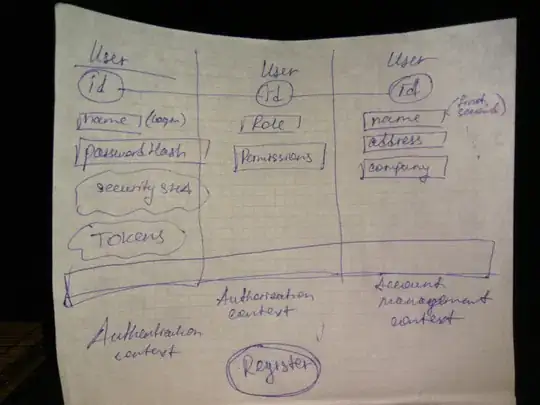 User
id
name (login)
passwordHash
security stuff
Tokens
Authentication
context
User
id
Role
Permissions
Authorization
context
User
id
name
address
company
Account
management
context
Register